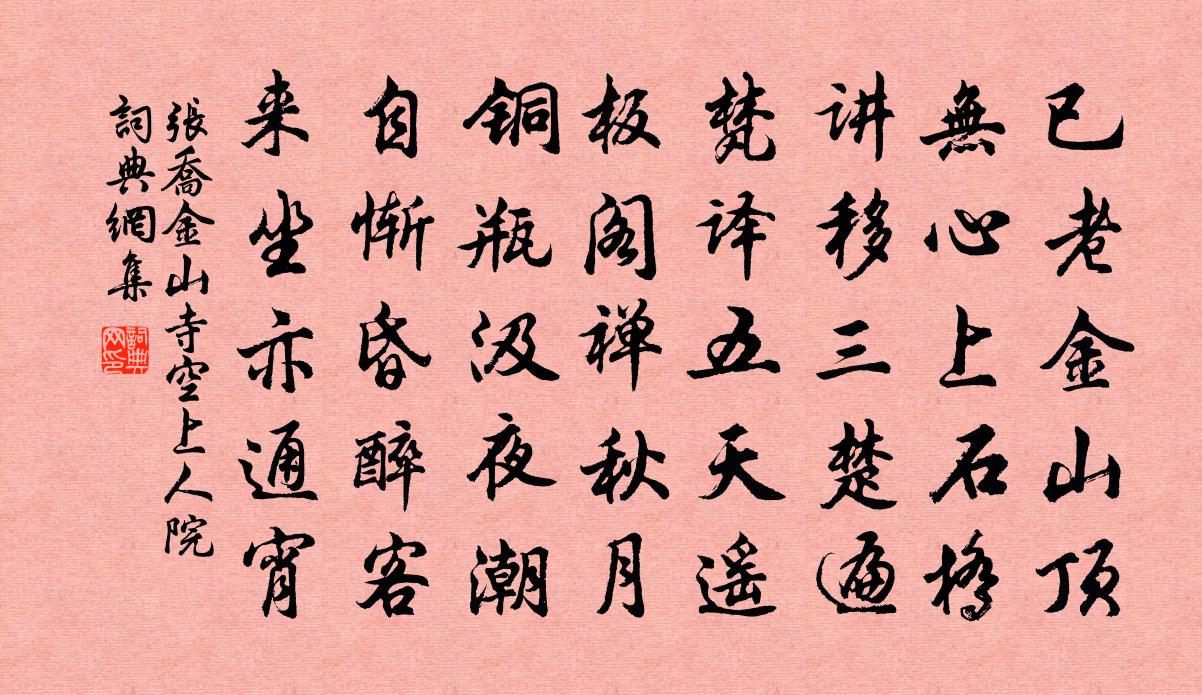 已老金山顶
無心上石橋
讲移三楚遍
梵译五天遥
板阁禅秋月
銅瓶汲夜潮
自惭昏醉客
来坐亦通宵
張喬金山寺空上人院
詞典網集
詞典网印